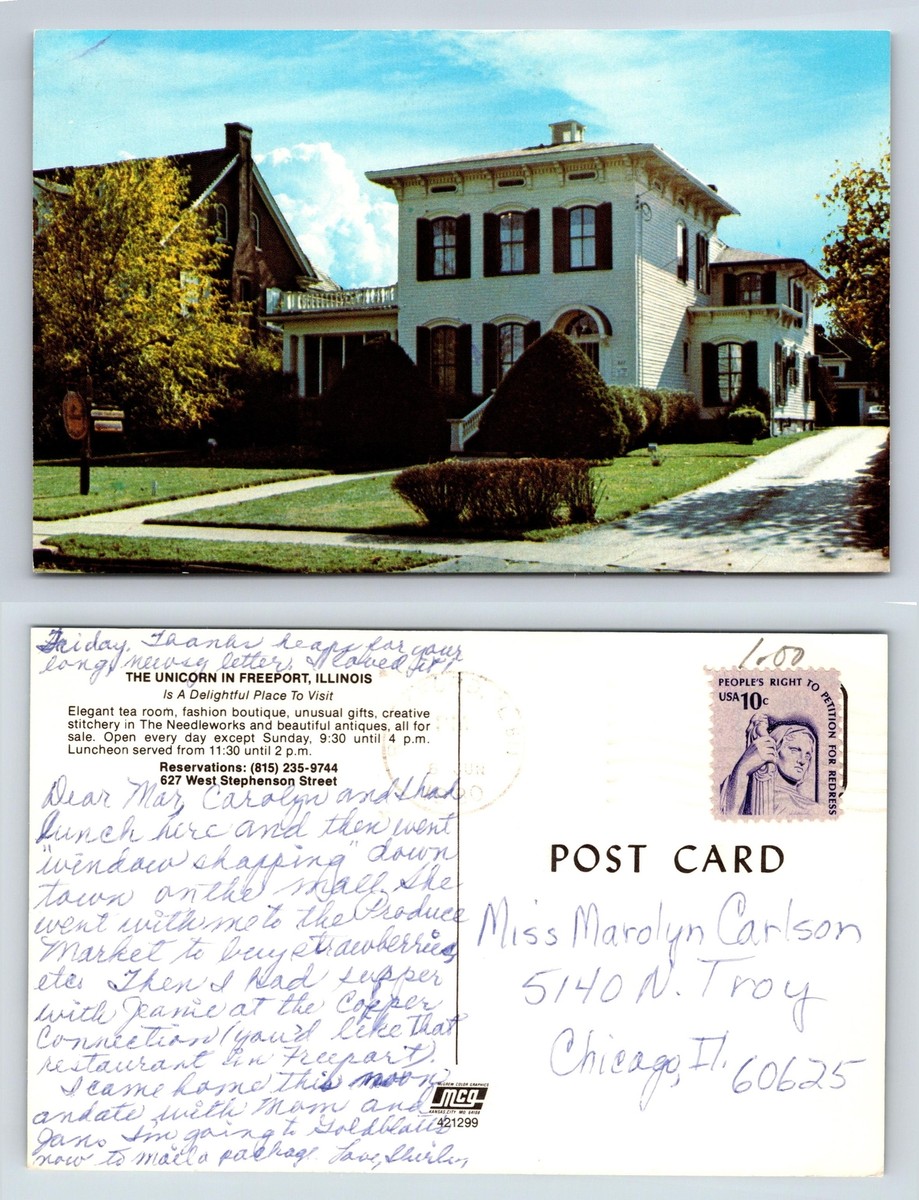 Friday, Thanks heaps for your
long, newsy letter. I loved it!
THE UNICORN IN FREEPORT, ILLINOIS
Is A Delightful Place To Visit
Elegant tea room, fashion boutique, unusual gifts, creative
stitchery in The Needleworks and beautiful antiques, all for
sale. Open every day except Sunday, 9:30 until 4 p.m.
Luncheon served from 11:30 until 2 p.m.
Reservations: (815) 235-9744
627 West Stephenson Street
Dear Mar, Carolyn and I had
lunch here and then went
"window shopping" down
town on the mall. She
went with me to the Produce
Market to buy strawberries,
etc. Then I had supper
with Jeanie at the Copper
Connection (you'd like that
restaurant in Freeport).
I came home this noon
and ate with Mom and
Jan. I'm going to Goldblatts
now to mail a package. Love, Shirley
McGREW COLOR GRAPHICS
mcg
KANSAS CITY, MO 64108
421299
1.00
PEOPLE'S RIGHT TO PETITION FOR REDRESS
USA 10c
POST CARD
Miss Marolyn Carlson
5140 N. Troy
Chicago, Il. 60625